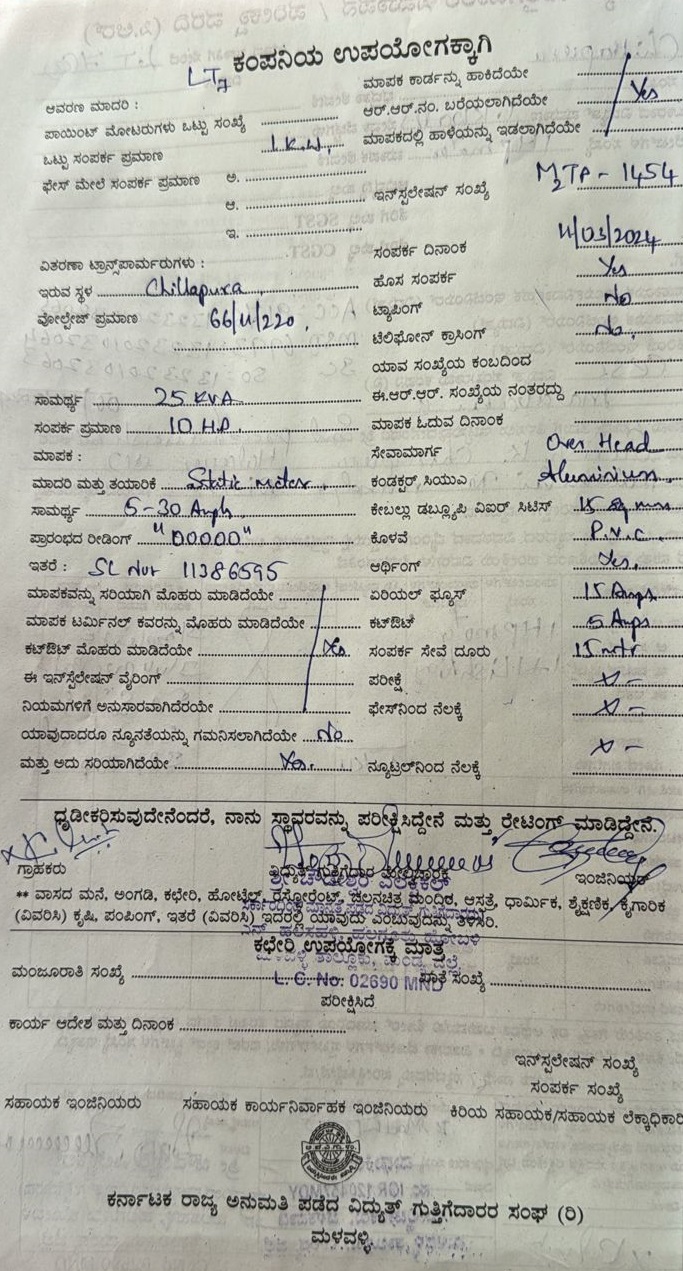 ಕಂಪನಿಯ ಉಪಯೋಗಕ್ಕಾಗಿ
LT7
ಆವರಣ ಮಾದರಿ :
ಮಾಪಕ ಕಾರ್ಡನ್ನು ಹಾಕಿದೆಯೇ
ಪಾಯಿಂಟ್ ಮೋಟರುಗಳು ಒಟ್ಟು ಸಂಖ್ಯೆ
ಆರ್.ಆರ್.ನಂ. ಬರೆಯಲಾಗಿದೆಯೇ Yes
ಒಟ್ಟು ಸಂಪರ್ಕ ಪ್ರಮಾಣ 1.K.W.
ಮಾಪಕದಲ್ಲಿ ಹಾಳೆಯನ್ನು ಇಡಲಾಗಿದೆಯೇ
ಫೇಸ್ ಮೇಲೆ ಸಂಪರ್ಕ ಪ್ರಮಾಣ ಅ.
ಇನ್‌ಸ್ಪಲೇಷನ್ ಸಂಖ್ಯೆ M2TP - 1454
ಆ.
ಇ.
ಸಂಪರ್ಕ ದಿನಾಂಕ 11/03/2024
ವಿತರಣಾ ಟ್ರಾನ್ಸ್‌ಪಾರ್ಮರುಗಳು :
ಹೊಸ ಸಂಪರ್ಕ Yes
ಇರುವ ಸ್ಥಳ Chillapura
ಟ್ಯಾಪಿಂಗ್ No
ವೋಲ್ಟೇಜ್ ಪ್ರಮಾಣ 66/11/220
ಟೆಲಿಫೋನ್ ಕ್ರಾಸಿಂಗ್ No.
ಯಾವ ಸಂಖ್ಯೆಯ ಕಂಬದಿಂದ
ಸಾಮರ್ಥ್ಯ 25 KVA
ಈ.ಆರ್.ಆರ್. ಸಂಖ್ಯೆಯ ನಂತರದ್ದು
ಸಂಪರ್ಕ ಪ್ರಮಾಣ 10 H.P.
ಮಾಪಕ ಓದುವ ದಿನಾಂಕ
ಮಾಪಕ :
ಸೇವಾಮಾರ್ಗ Over Head
ಮಾದರಿ ಮತ್ತು ತಯಾರಿಕೆ Static meter
ಕಂಡಕ್ಟರ್ ಸಿಯುಎ Aluminium
ಸಾಮರ್ಥ್ಯ 5-30 Amph
ಕೇಬಲ್ಲು ಡಬ್ಲ್ಯೂಪಿ ವಿಐರ್ ಸಿಟಿಸ್ 15 Sq mm
ಪ್ರಾರಂಭದ ರೀಡಿಂಗ್ "00000"
ಕೊಳವೆ P.V.C.
ಇತರೆ : SL Nor 11386595
ಆರ್ಥಿಂಗ್ Yes.
ಮಾಪಕವನ್ನು ಸರಿಯಾಗಿ ಮೊಹರು ಮಾಡಿದೆಯೇ
ಏರಿಯಲ್ ಫ್ಯೂಸ್ 15 Amps
ಮಾಪಕ ಟರ್ಮಿನಲ್ ಕವರನ್ನು ಮೊಹರು ಮಾಡಿದೆಯೇ
ಕಟ್‌ಔಟ್ 5 Amps
ಕಟ್‌ಔಟ್ ಮೊಹರು ಮಾಡಿದೆಯೇ Yes
ಸಂಪರ್ಕ ಸೇವೆ ದೂರು 15 mtr
ಈ ಇನ್‌ಸ್ಪಲೇಷನ್ ವೈರಿಂಗ್
ಪರೀಕ್ಷೆ X -
ನಿಯಮಗಳಿಗೆ ಅನುಸಾರವಾಗಿದೆರಯೇ
ಫೇಸ್‌ನಿಂದ ನೆಲಕ್ಕೆ X -
ಯಾವುದಾದರೂ ನ್ಯೂನತೆಯನ್ನು ಗಮನಿಸಲಾಗಿದೆಯೇ No
ಮತ್ತು ಅದು ಸರಿಯಾಗಿದೆಯೇ Yes.
ನ್ಯೂಟ್ರಲ್‌ನಿಂದ ನೆಲಕ್ಕೆ X -
ಧೃಡೀಕರಿಸುವುದೇನೆಂದರೆ, ನಾನು ಸ್ಥಾವರವನ್ನು ಪರೀಕ್ಷಿಸಿದ್ದೇನೆ ಮತ್ತು ರೇಟಿಂಗ್ ಮಾಡಿದ್ದೇನೆ.
ಗ್ರಾಹಕರು ವಿದ್ಯುತ್ ಗುತ್ತಿಗೆದಾರ ಮೇಲ್ವಿಚಾರಕ ಇಂಜಿನಿಯರ್
** ವಾಸದ ಮನೆ, ಅಂಗಡಿ, ಕಛೇರಿ, ಹೋಟೆಲ್, ರೆಸ್ಟೋರೆಂಟ್, ಚಲನಚಿತ್ರ ಮಂದಿರ, ಆಸ್ಪತ್ರೆ, ಧಾರ್ಮಿಕ, ಶೈಕ್ಷಣಿಕ, ಕೈಗಾರಿಕ
(ವಿವರಿಸಿ) ಕೃಷಿ, ಪಂಪಿಂಗ್, ಇತರೆ (ವಿವರಿಸಿ) ಇದರಲ್ಲಿ ಯಾವುದು ಎಂಬುವುದನ್ನು ತಿಳಿಸಿರಿ.
ಕಛೇರಿ ಉಪಯೋಗಕ್ಕೆ ಮಾತ್ರ
ಮಂಜೂರಾತಿ ಸಂಖ್ಯೆ ಖಾತೆ ಸಂಖ್ಯೆ
L. C. No: 02690 MND
ಪರೀಕ್ಷಿಸಿದೆ
ಕಾರ್ಯ ಆದೇಶ ಮತ್ತು ದಿನಾಂಕ
ಇನ್‌ಸ್ಪಲೇಷನ್ ಸಂಖ್ಯೆ
ಸಂಪರ್ಕ ಸಂಖ್ಯೆ
ಸಹಾಯಕ ಇಂಜಿನಿಯರು ಸಹಾಯಕ ಕಾರ್ಯನಿರ್ವಾಹಕ ಇಂಜಿನಿಯರು ಕಿರಿಯ ಸಹಾಯಕ/ಸಹಾಯಕ ಲೆಕ್ಕಾಧಿಕಾರಿ
ಕರ್ನಾಟಕ ರಾಜ್ಯ ಅನುಮತಿ ಪಡೆದ ವಿದ್ಯುತ್ ಗುತ್ತಿಗೆದಾರರ ಸಂಘ (ರಿ)
ಮಳವಳ್ಳಿ.